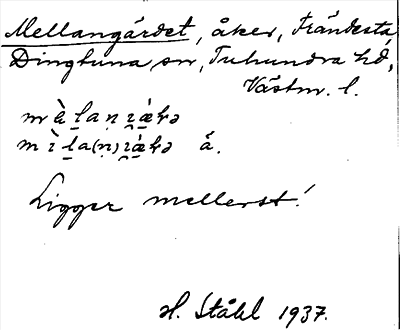 Mellangärdet, åker, Frändesta,
Dingtuna sn, Tuhundra hd,
Västm. l.
å.
Ligger mellerst!
H. Ståhl 1937.